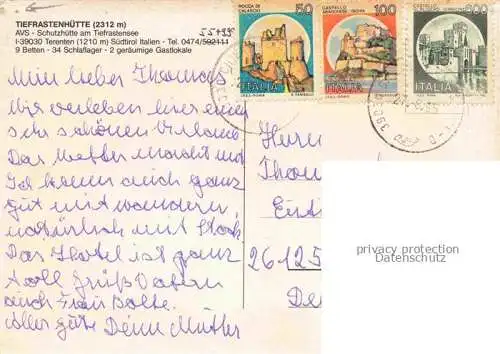 TIEFRASTENHÜTTE (2312 m)
AVS - Schutzhütte am Tiefrastensee
I-39030 Terenten (1210 m) Südtirol Italien - Tel. 0474/592111
55 4999
9 Betten - 34 Schlaflager - 2 geräumige Gastlokale
ROCCA DI CALASCIO
50
ITALIA
CASTELLO ARAGONESE ISCHIA
100
ITALIA
ITALIA
Mein lieber Thomas
Wir verleben hier einen
sehr schönen Urlaub.
Das Wetter macht mit
Ich komm auch ganz
gut mit wandern,
natürlich mit Stock
Das Hotel ist ganz
toll Grüß Vatern
auch Frau Bolte.
Alles gute Deine Mutter
Herrn
26125
privacy protection
Datenschutz